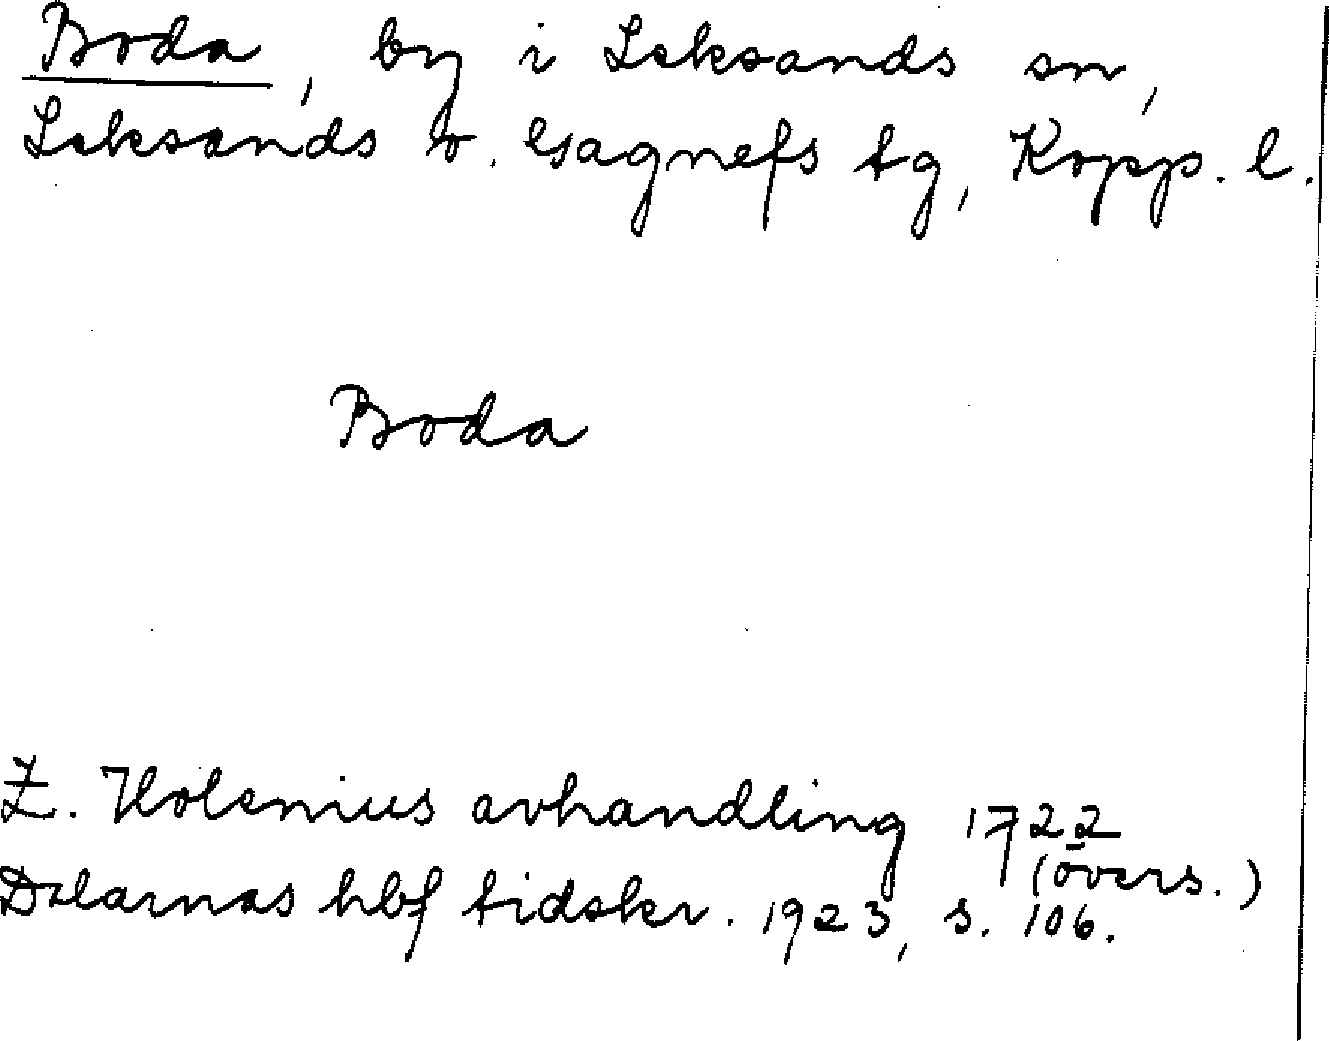 Boda, by i Leksands sn,
Leksands o. Gagnefs tg, Kopp. l.
Boda
Z. Holenius avhandling 1722
(övers.)
Dalarnas hbf tidskr. 1923, s. 106.